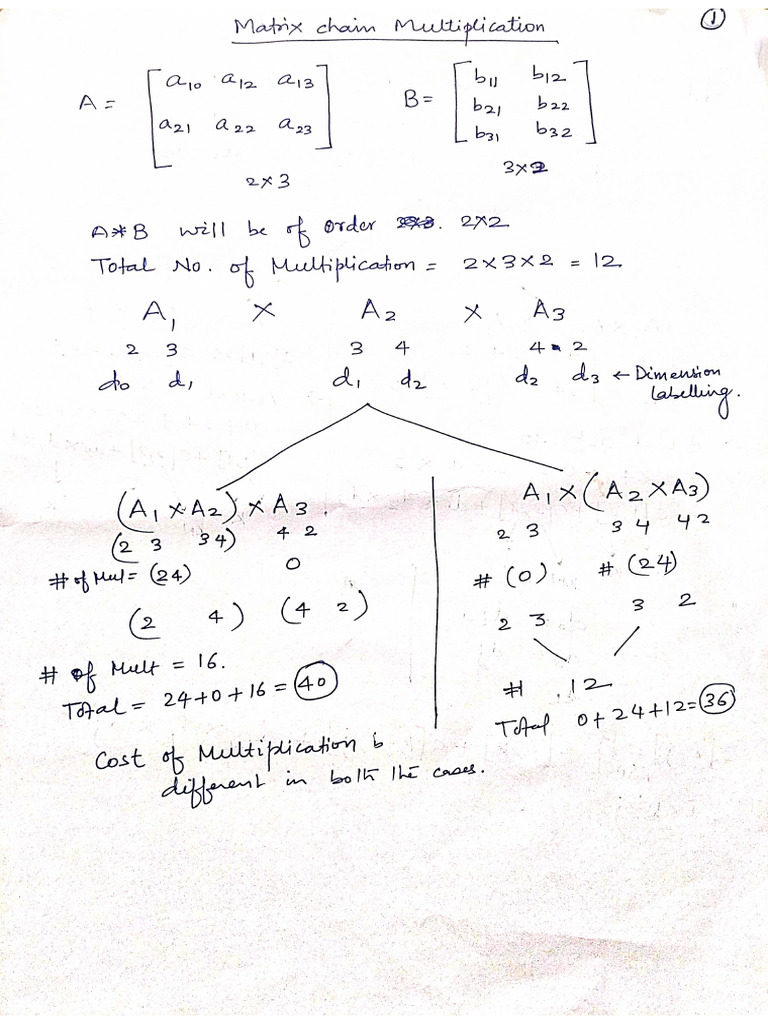 Matrix chain Multiplication
1
A = [ a10 a12 a13
a21 a22 a23 ]
2×3
B = [ b11 b12
b21 b22
b31 b32 ]
3×2
A*B will be of order 2×2
Total No. of Multiplication = 2×3×2 = 12
A1 × A2 × A3
2 3 3 4 4 2
d0 d1 d1 d2 d2 d3 ← Dimension
Labelling.
(A1 × A2) × A3.
(2 3 3 4) 4 2
# of Mul = (24) 0
(2 4) (4 2)
# of Mult = 16.
Total = 24+0+16 = 40
A1 × (A2 × A3)
2 3 3 4 4 2
# (0) # (24)
2 3 3 2
# 12
Total 0+24+12=36
Cost of Multiplication is
different in both the cases.